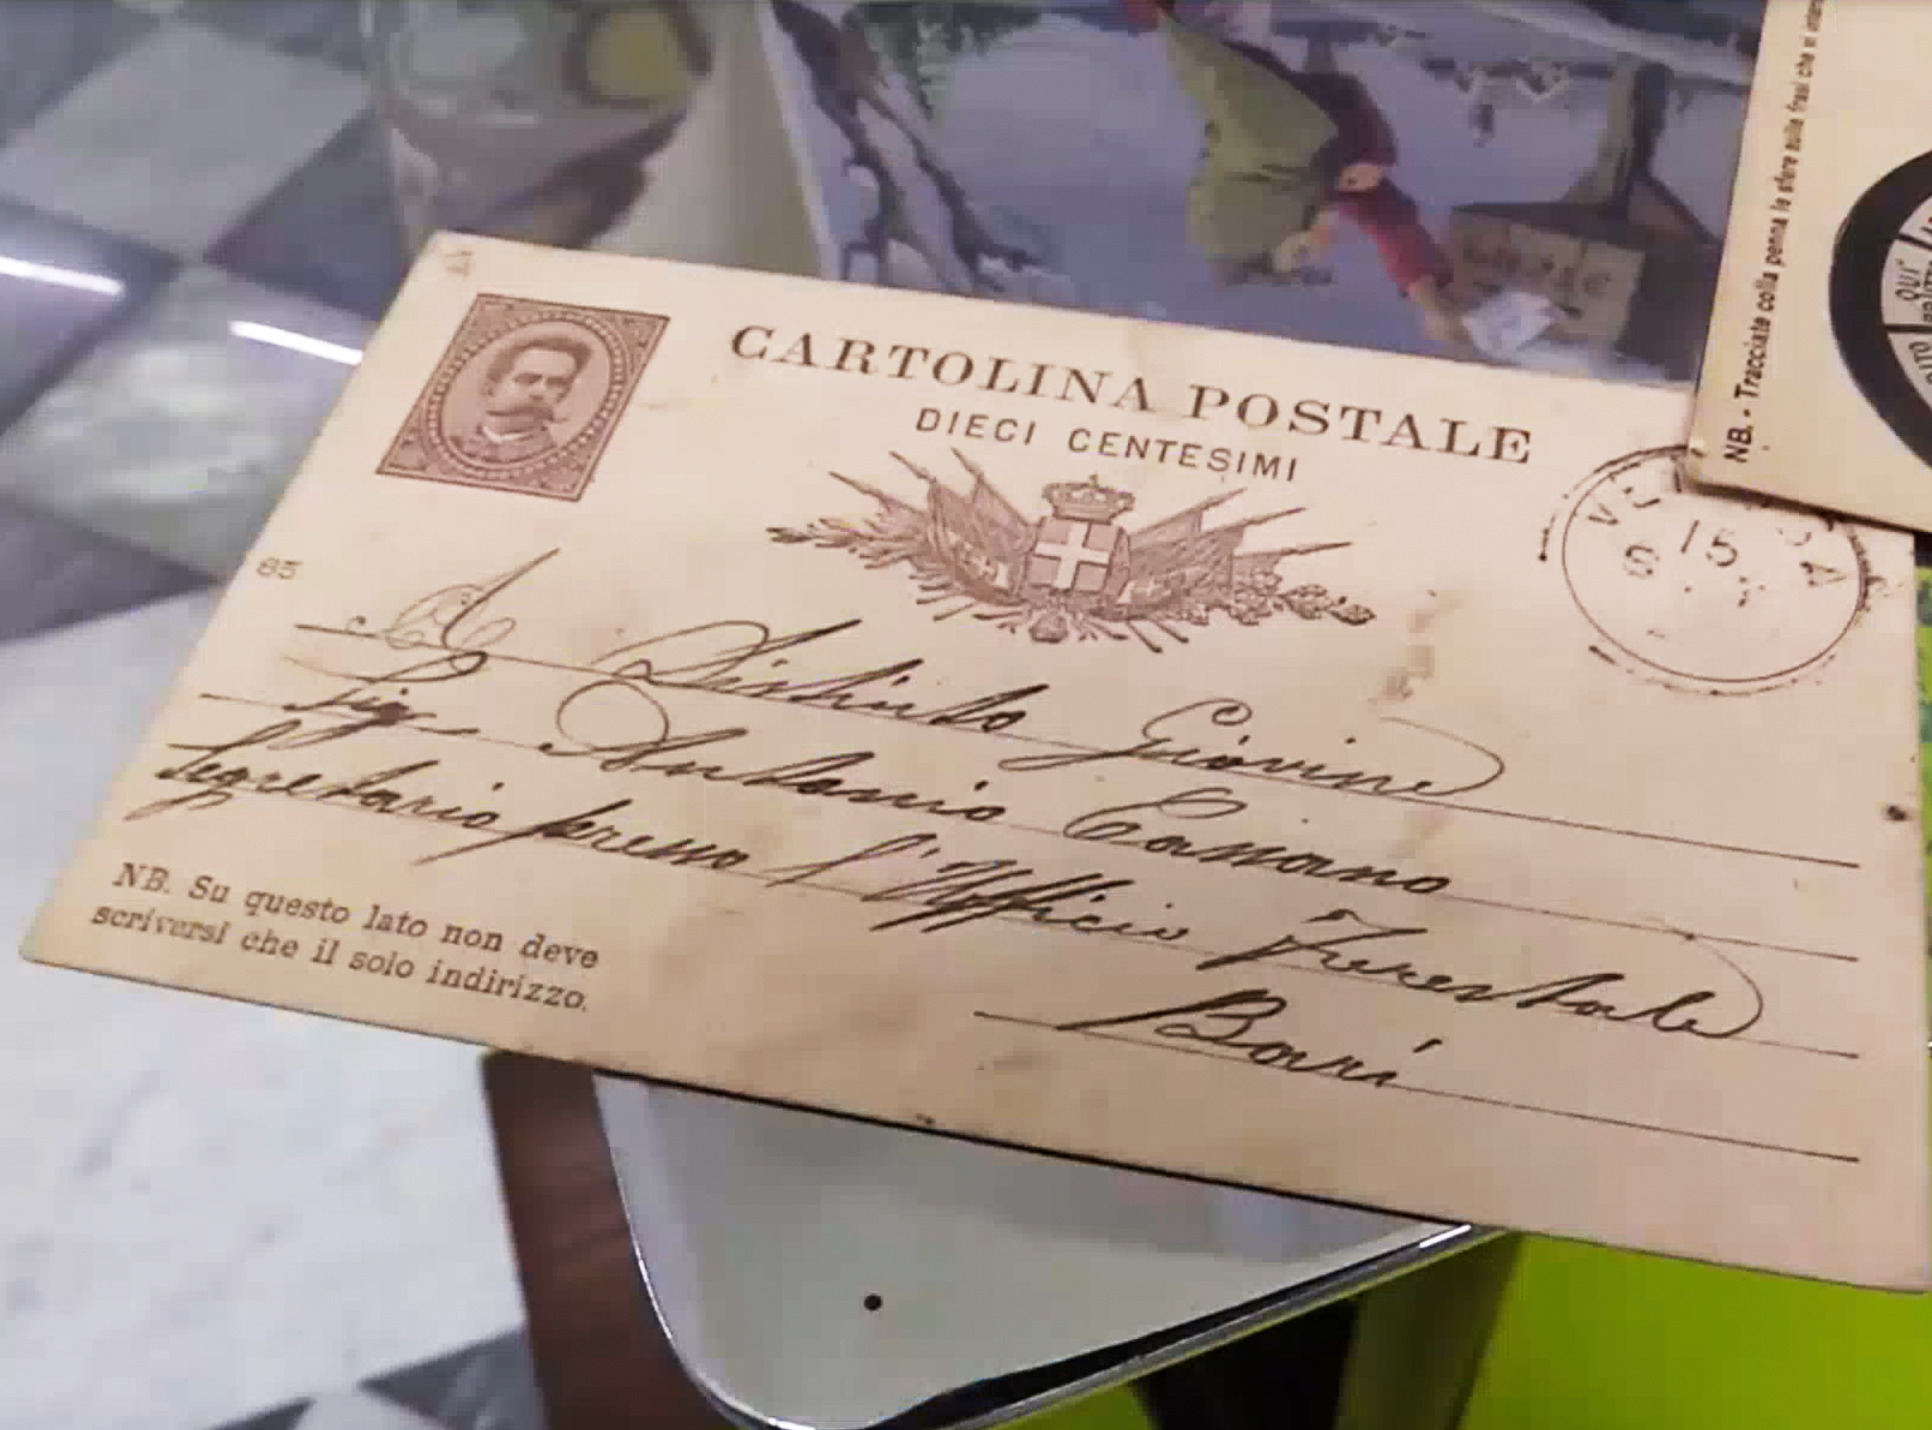 CARTOLINA POSTALE
DIECI CENTESIMI
15
85
A Distinto Giovine
Sigr Antonio Cassano
Segretario presso l'Ufficio Forestale
Bari
NB. Su questo lato non deve
scriversi che il solo indirizzo.
NB. - Tracciate colla penna le sfere sulle frasi che vi
QUI